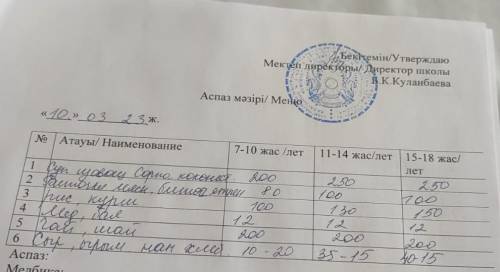 Бекітемін/Утверждаю
Мектеп директоры/ Директор школы
В.К.Куланбаева
Аспаз мәзірі/ Меню
«10.» 03 23 ж.
№ Атауы/ Наименование 7-10 жас /лет 11-14 жас/лет 15-18 жас/ лет
1 Сорпа 200 250 250
2 80 100 100
3 рис, күріш 100 130 150
4 Мед, бал 12 12 12
5 Чай, шай 200 200 200
6 Сыр, ірімшік нан хлеб. 10-20 35-15 40-15
Аспаз:
Медбике: